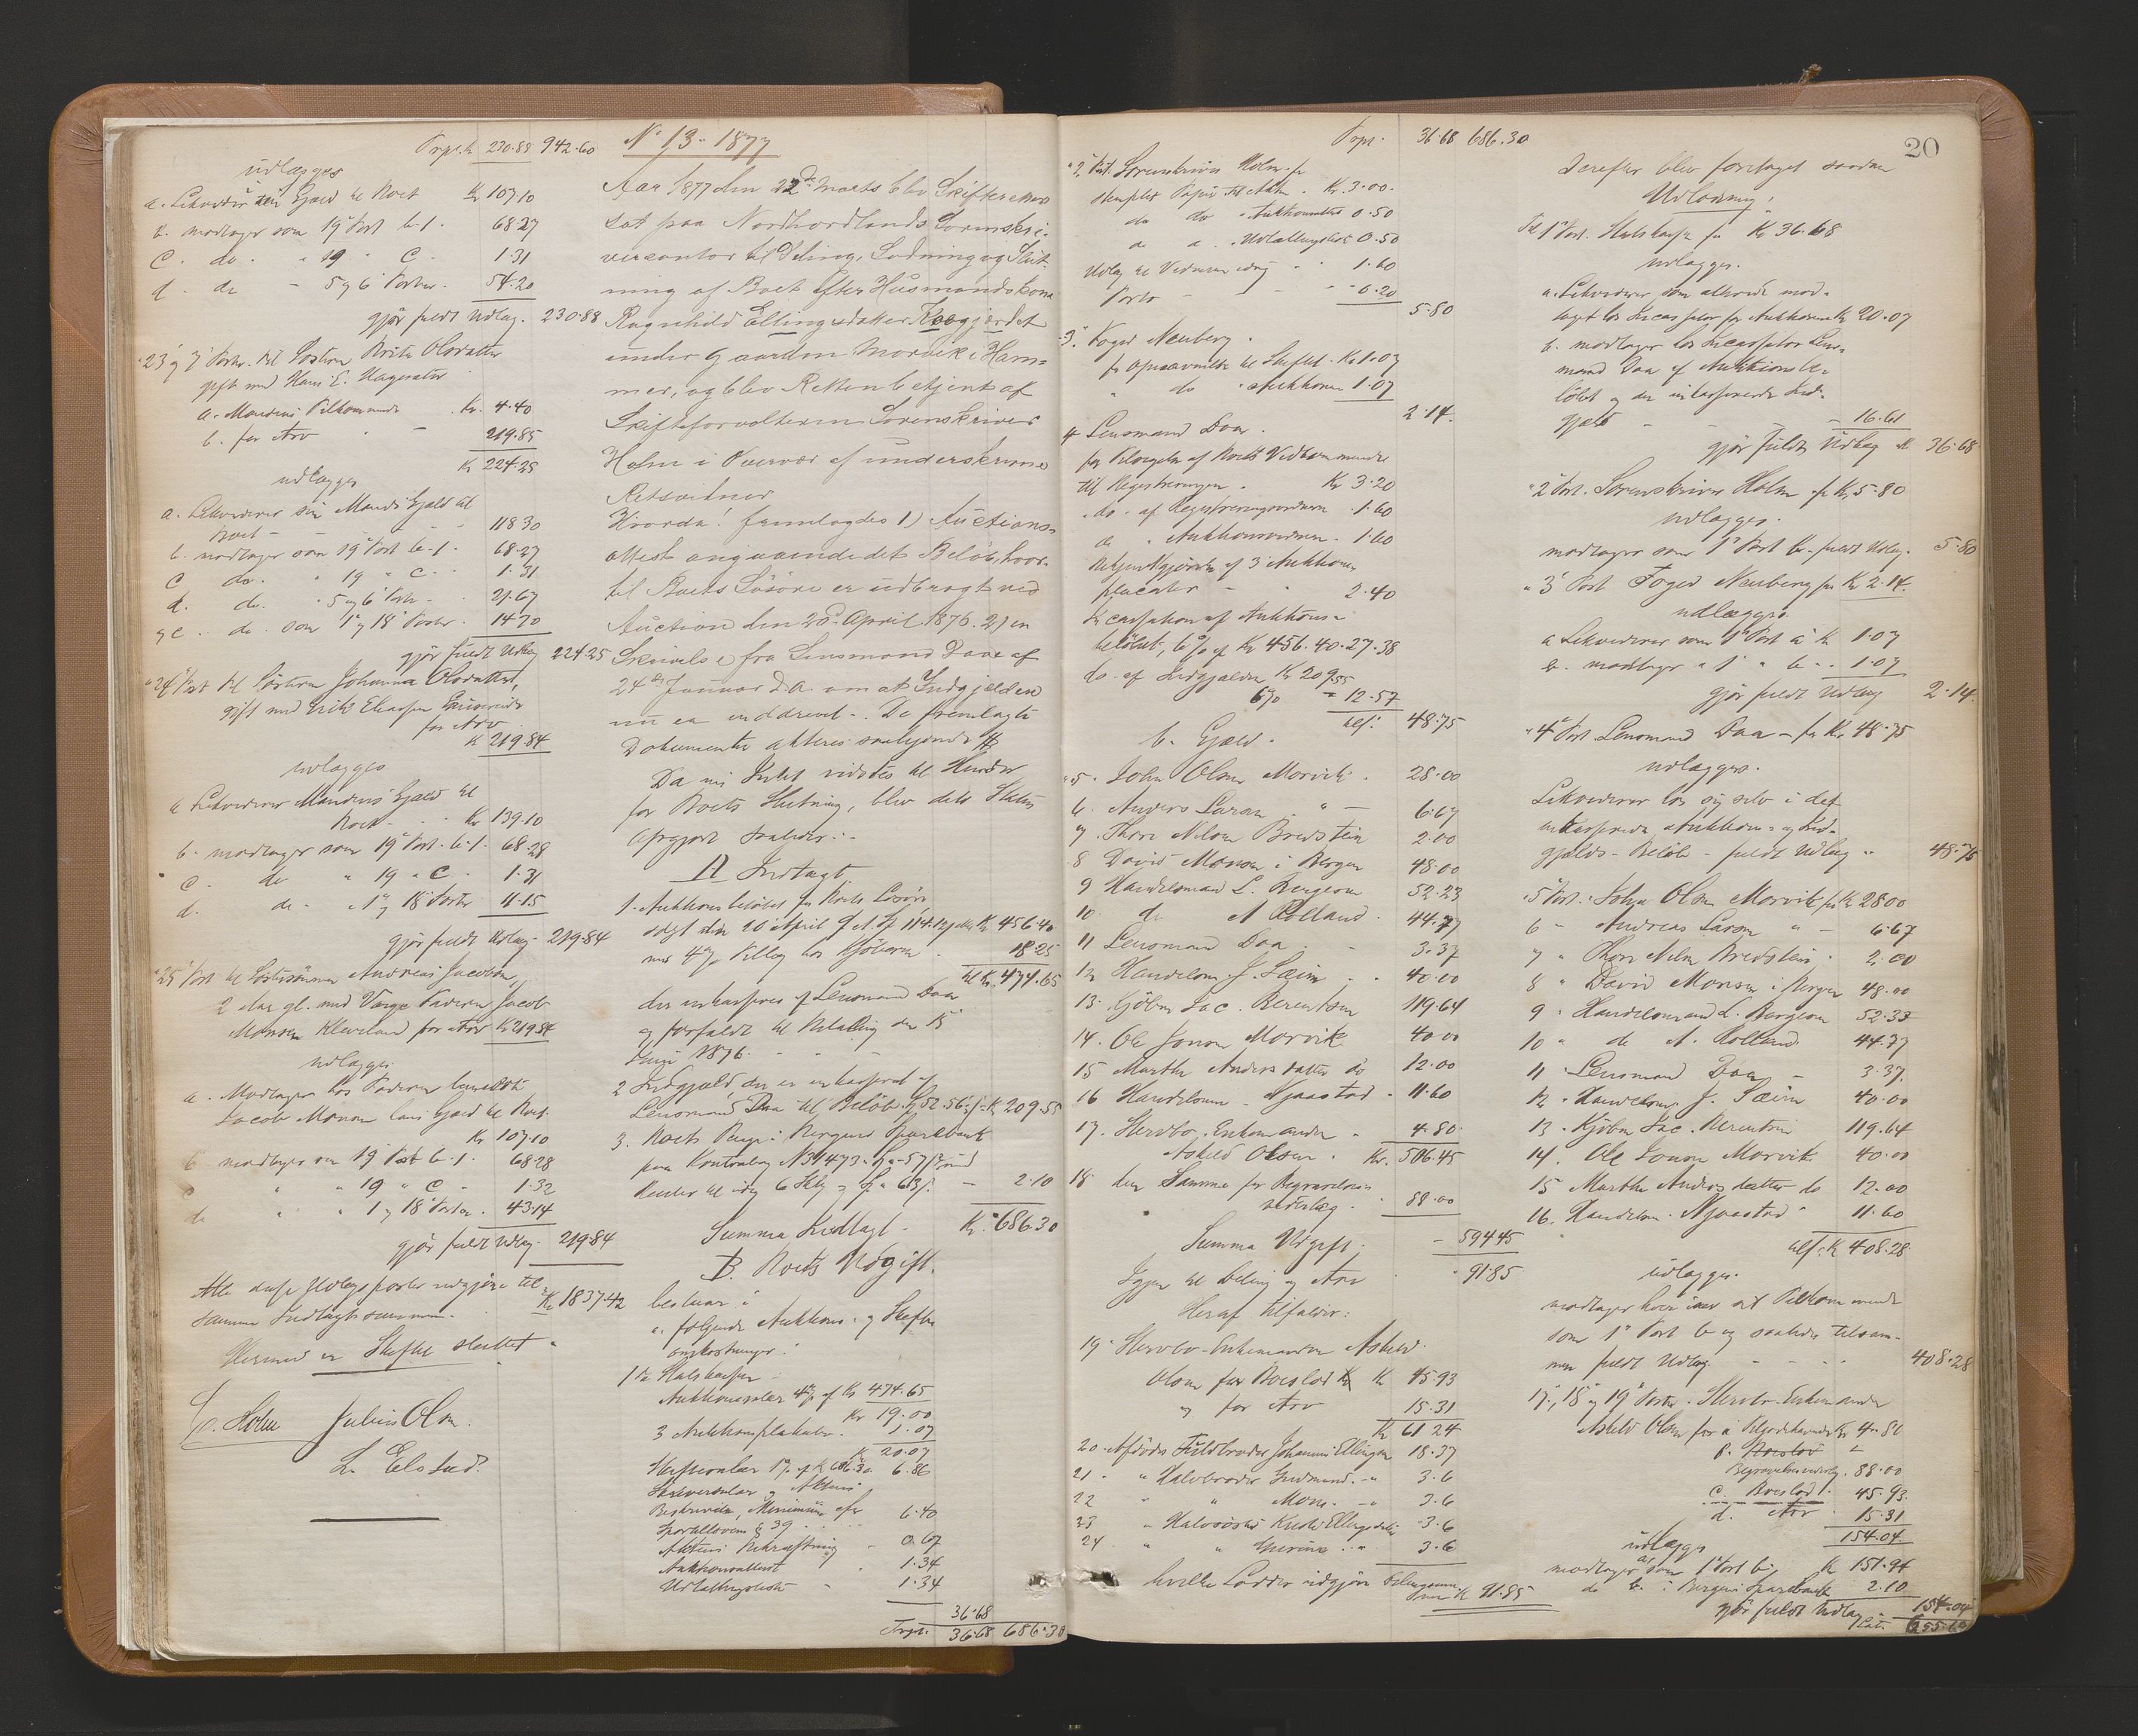 Trpt. 230.88 942.60
udlægges
a. Likviderer sin Gjæld til Boet Kr 107.10
b. modtager som 19de Post b.1. 68.27
c. do. " 19 " c. 1.31
d. do - 5 og 6 Poster. 54.20
gjør fuldt Udlæg. 230.88
23 og 7 Poster. Til Søsteren Brita Olsdatter
gift med Hans E.
a. Mandens Tilkommende Kr. 4.40
b. for Arv - 219.85
Kr 224.25
udlægges
a. Likviderer sin Mands Gjæld til
Boet - 118.30
b. modtager som 19 Post b.1. 68.27
c do. " 19 " c. 1.31
d. do. " 5 og 6 Poster - 21.67
og e. do. som 1 og 18 Poster. 14.70
gjør fuldt Udlæg 224.25
24 Post til Søsteren Johanna Olsdatter,
gift med Erik Eliassen
for Arv
Kr 219.84
udlægges
a Likviderer Mandens Gjæld til
Boet - Kr 139.10
b. modtager som 19 Post. b.1. 68.28
c. do " 19 " c - 1.31
d. do - " 1 og 18 Poster 11.15
gjør fuldt Udlæg - 219.84
25 Post til Søstersønnen Andreas Jacobsen,
2 Aar gl. med Værge Faderen Jacob
Monsen Kleveland for Arv Kr 219.84
udlægges
a. Modtager hos Faderen bemeldte
Jacob Monsen hans Gjæld til Boet.
Kr 107.10
b modtager som 19 Post b.1. 68.28
c " " 19 " c - 1.32
d " " 1 og 18 Poster. 43.14
gjør fuldt Udlæg - 219.84
Alle disse Udlægsposter udgjøre til-
sammen Indtægtssummen. Kr 1837.42
Hermed er Skiftet sluttet.
C. Holm Julius Olsen.
L. Elstad.
No 13 - 1877
Aar 1877 den 22de Marts blev Skifteret
sat paa Nordhordlands Sorenskri-
vercontor til Deling, Lodning og Slut-
ning af Boet efter Husmandskone
Ragnhild Ellingsdatter Kvægjerdet
under Gaarden Morvik i Ham-
mer, og blev Retten betjent af
Skifteforvalteren Sorenskriver
Holm i Overvær af underskrevne
Retsvidner
Hvorda! fremlagdes 1) Auctions-
attest angaaende det Beløb, hvor-
til Boets Løsøre er udbragt ved
Auction den 20de April 1876. 2) en
Skrivelse fra Lensmand Daae af
24de Januar d.A. om at Indgjelden
nu er inddrevet -. De fremlagte
Dokumenter akteres saalydende #
Da nu Intet vidstes til Hinder
for Boets Slutning, blev dets Status
opgjort saaledes:-
A Indtægt
1. Auktionsbeløbet for Boets Løsøre,
solgt den 20 April f.A. Kr 456.40
med 4 % Tillæg hos Kjøberne. 18.25
til Kr. 474.65
der inkasseres af Lensmand Daa
og forfaldt til Betaling den 15
Juni 1876. - - -
2 Indgjæld, der er inkasseret af
Lensmand Daa til Beløb Kr 209.55
3. Boets Penge i Bergens Sparebank
paa Kontrabog No 31473
Renter til idag - 2.10
Summa Indtægt - Kr. 686.30
B. Boets Udgift.
bestaar i
a. følgende Auktions- og Skifte-
omkostninger:
1 Til Statskassen
Auktionssalær 4 % af Kr 474.65
Kr 19.00
3 Auktionsplakater. 1.07
Kr 20.07
Skiftesalær 1 % af Kr 686.30 6.86
Skriversalær og Aktens
Beskrivelse, Minimum efter
Sportelloven § 39 6.40
Aktens Bekræftning - 0.67
Auktionsattest 1.34
Udlodningsliste - 1.34
36.68
Trpt. 36.68 686.30
Trpt. 36.68 686.30
2 Post. Sorenskriver Holm for
stemplet Papir til Akten. Kr. 3.00.
do do " Auktionsattest 0.50
do d. " Udlodningsliste 0.50
Udlæg til Vidnerne idag " " 1.60
Porto - - - 0.20
5.80
3. Foged Neuberg.
for Opnævnelse til Skiftet. Kr 1.07
" do " Auktionen 1.07
2.14.
4 Lensmand Daa.
for Tilsigelse af Boets Vedkommende
til Registreringen. Kr 3.20
do. af Registreringsmænd 1.60
do " Auktionsvidner - 1.60
Bekjendtgjørelse af 3 Auktions
placater - " 2.40
Inkassation af Auktions-
beløbet, 6 % af Kr 456.40 - 27.38
do. af Indgjælden Kr 209.55
6 % - 12.57
tils: 48.75
b. Gjæld.
5. John Olsen Morvik. 28.00
6. Anders Larsen " - 6.67
7. Thore Nilsen Bredstein 2.00
8 David Monsen i Bergen 48.00
9 Handelsmand L. Bergesen 52.23
10 do A Rolland. 44.77
11 Lensmand Daa. - 3.37
12 Handelsm. J. Sæim . . 40.00
13. Kjøbm. Jac. Berentsen 119.64
14. Ole Jonsen Morvik 40.00
15 Marthe Andersdatter do 12.00
16 Handelsm. Njaastad. 11.60
17. Stervbo-Enkemanden - 4.80.
Askild Olsen. Kr. 506.45
18 den Samme for Begravelses-
vederlag. 88.00
Summa Udgift, - 594.45
Igjen til Deling og Arv - 91.85
Heraf tilfalder:
19 Stervbo-Enkemanden Askild
Olsen for Boeslod Kr 45.93
og for Arv 15.31
Kr 61.24
20. Afdødes Fuldbroder Johannes Ellingsen 18.37
21. " Halvbroder Gudmund - " 3.6
22 " " Mons. - " 3.6
23 " Halvsøster Kristi Ellingsdatter 3.6
24 " " . . " 3.6
hvilke Lodder udgjøre Delingssum-
men Kr 91.85
20
Derefter blev foretaget saadan
Udlodning:
Til 1 Post. Statskassen for Kr 36.68
udlægges.
a. Likviderer som allerede mod-
taget hos Incassator for Auktionen Kr 20.07
b. modtager hos Incassator Lens-
mand Daa af Auktionsbe-
løbet og den inkasserede Ind-
gjæld - - - 16.61
gjør fuldt Udlæg Kr 36.68
2 Post. Sorenskriver Holm for Kr 5.80
udlægges.
modtager som 1 Post b. fuldt Udlæg. 5.80
3 Post Foged Neuberg for Kr 2.14.
udlægges.
a Likviderer som 1 Post a Kr 1.07
b. modtager " 1 " b. . 1.07
gjør fuldt Udlæg 2.14.
4 Post Lensmand Daa - for Kr. 48.75
udlægges.
Likviderer hos sig selv i det
inkasserede Auktions- og Ind-
gjælds-Beløb - fuldt Udlæg " 48.75
5 Post: John Olsen Morvik for Kr 28.00
6 - Andreas Larsen " - 6.67
7 " Thore Nilsen Bredstein. 2.00
8 " David Monsen i Bergen 48.00
9 " Handelsmand L. Bergesen 52.23
10 " do A. Rolland. 44.77
11 " Lensmand Daa - 3.37.
12 " Handelsm. J. Sæim 40.00
13 " Kjøbm. Jac. Berentsen 119.64
14. Ole Jonsen Morvik 40.00
15 Marthe Andersdatter do 12.00
16. Handelsm. Njaastad " 11.60
tils: Kr 408.28
udlægges.
modtager hver især sit Tilkommende
som 1 Post b og saaledes tilsam-
men fuldt Udlæg. - - - 408.28
17, 18 og 19 Poster. Stervbo-Enkemanden
Askild Olsen for a Tilgodehavende Kr 4.80
b. Boeslod "
Begravelsesvederlag. 88.00
c. Boeslod. 45.93.
d. Arv 15.31
154.04.
udlægges
modtager som 1 Post b, Kr 151.94
do b. i Bergens Sparebank 2.10
gjør fuldt Udlæg 154.04
Lat. 655.69